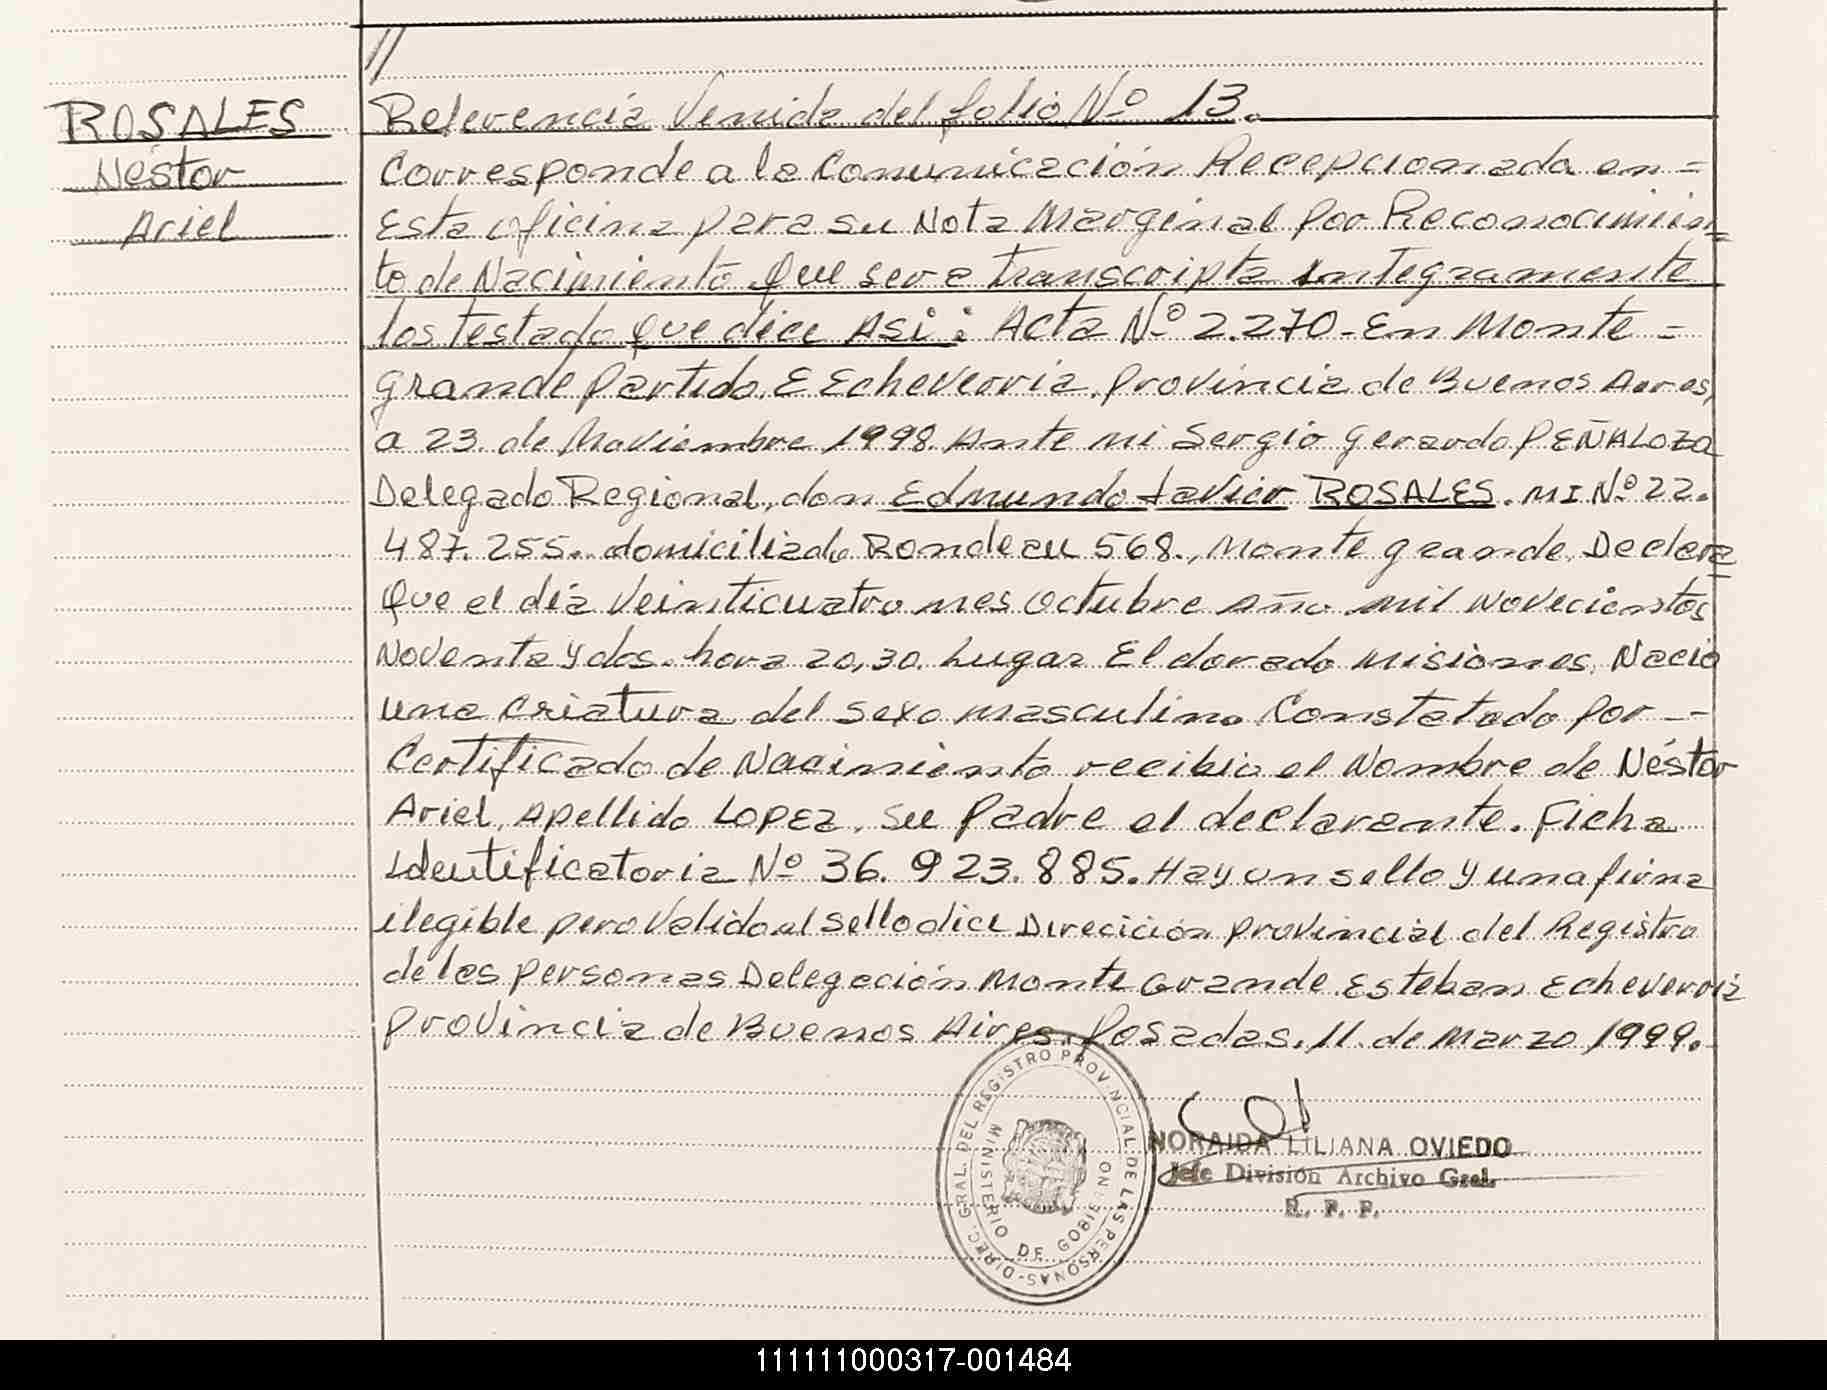 //
ROSALES
Néstor
Ariel
Referencia Venida del folio Nº 13.
Corresponde a la Comunicación Recepcionada en =
Esta oficina para su Nota Marginal por Reconocimien=
to de Nacimiento Que sera transcripta integramente
los testado que dice Asi: Acta Nº 2.270-En Monte =
grande Partido. E Echeverria. provincia de Buenos Aires,
a 23. de Noviembre 1998. Ante mi Sergio Gerardo PEÑALOZA
Delegado Regional, don Edmundo Javier ROSALES. MI Nº 22.
487. 255. domiciliado Rondeau 568., Monte grande. Declara
Que el día Veinticuatro mes Octubre Año mil Novecientos
Noventa y dos. hora 20,30. Lugar El dorado Misiones, Nacio
una Criatura del sexo masculino Constatado por --
Certificado de Nacimiento recibio el Nombre de Néstor
Ariel, Apellido LOPEZ. su Padre el declarante. Ficha
Identificatoria Nº 36. 923. 885. Hay un sello y una firma
ilegible pero Valido el sello dice Direcición provincial del Registro
de las personas Delegación Monte Grande Esteban Echeverria
provincia de Buenos Aires. Posadas. 11. de Marzo 1999.
DIREC. GRAL. DEL REGISTRO PROVINCIAL DE LAS PERSONAS-
MINISTERIO DE GOBIERNO
NORAIDA LILIANA OVIEDO
Jefe División Archivo Gral.
R. P. P.
111111000317-001484